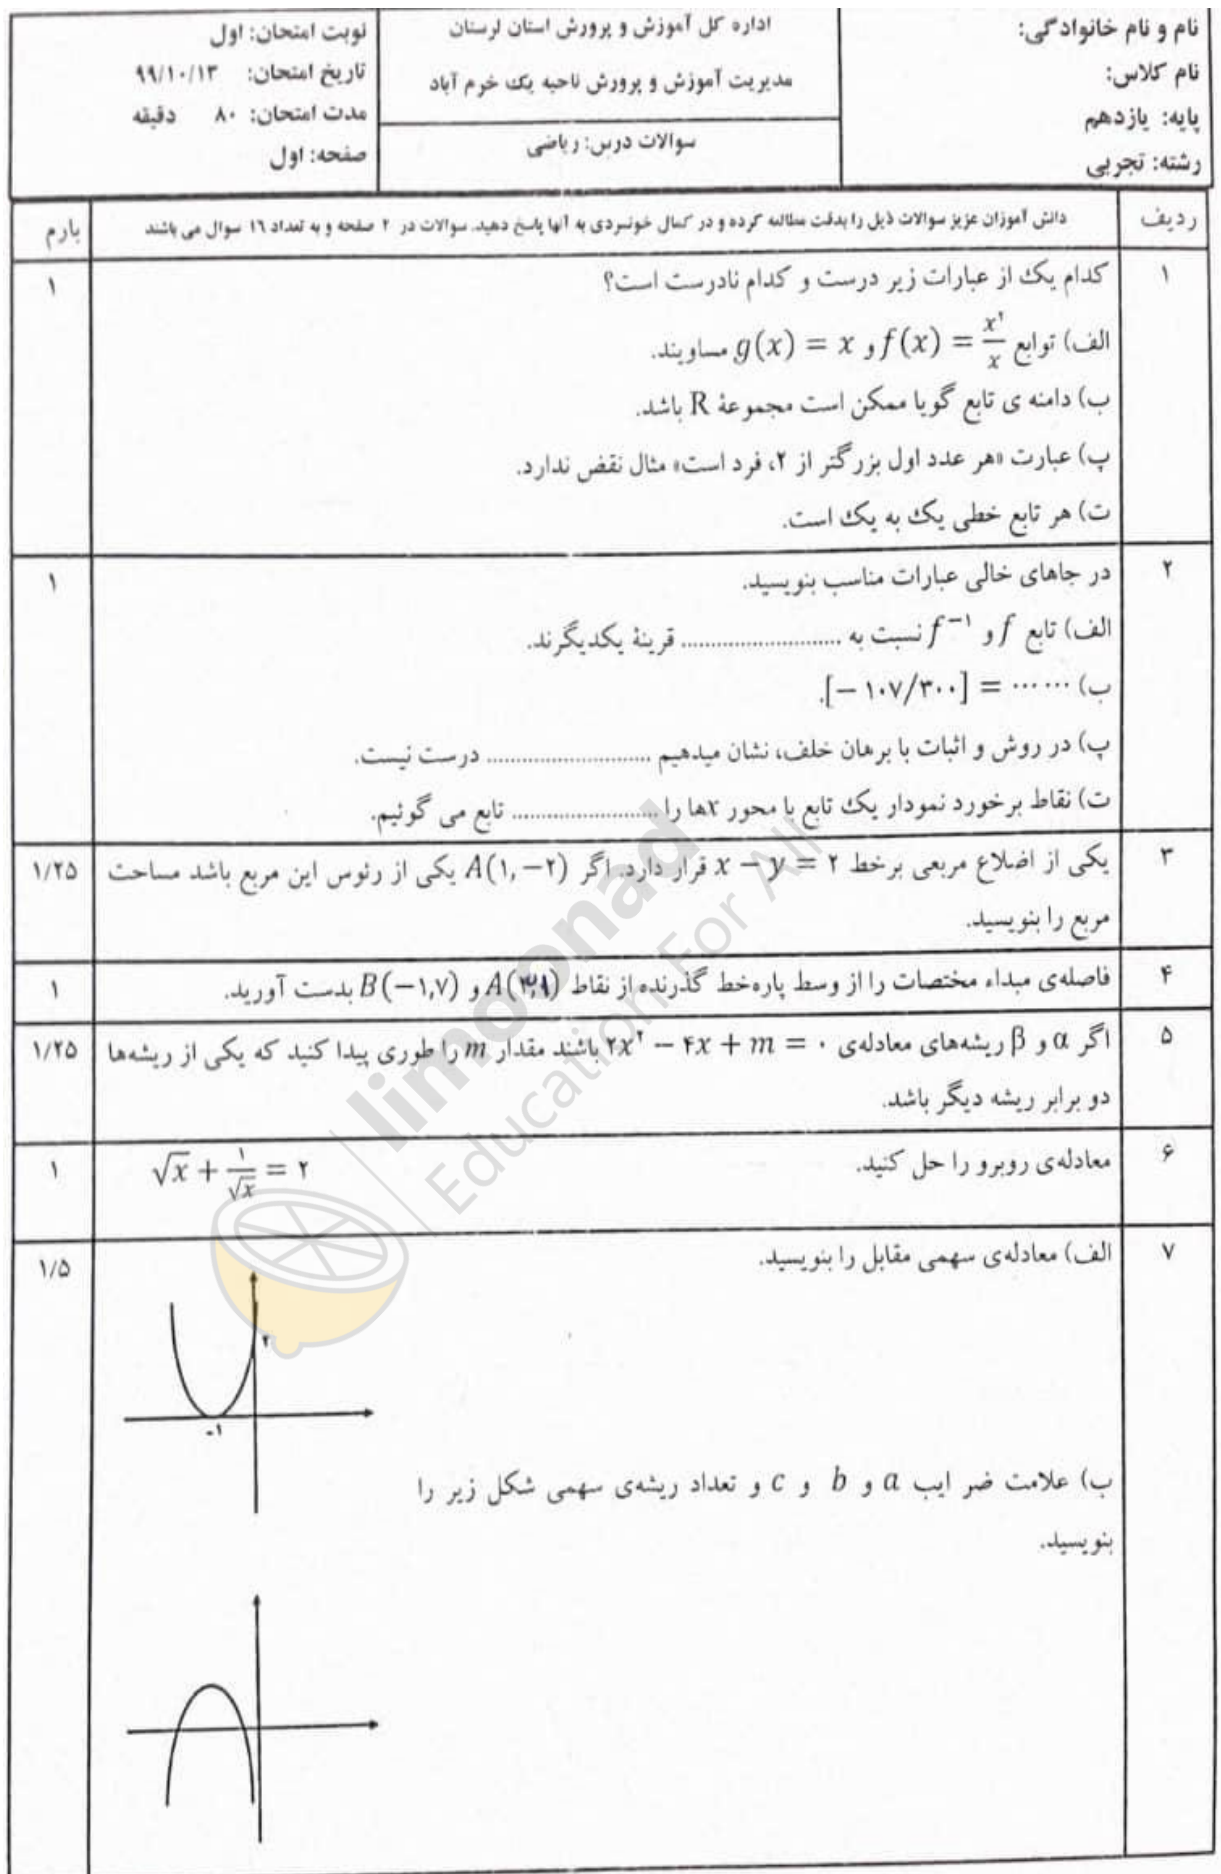 نام و نام خانوادگی:
نام کلاس:
پایه: یازدهم
رشته: تجربی
اداره کل آموزش و پرورش استان لرستان
مدیریت آموزش و پرورش ناحیه یک خرم آباد
سوالات درس: ریاضی
نوبت امتحان: اول
تاریخ امتحان: ۹۹/۱۰/۱۳
مدت امتحان: ۸۰ دقیقه
صفحه: اول
ردیف
دانش آموزان عزیز سوالات ذیل را بدقت مطالعه کرده و در کمال خونسردی به آنها پاسخ دهید. سوالات در ۲ صفحه و به تعداد ۱۶ سوال می باشند
بارم
۱
کدام یک از عبارات زیر درست و کدام نادرست است؟
۱
الف) توابع f(x) = x^۲/x و g(x) = x مساویند.
ب) دامنه ی تابع گویا ممکن است مجموعهٔ R باشد.
پ) عبارت «هر عدد اول بزرگتر از ۲، فرد است» مثال نقض ندارد.
ت) هر تابع خطی یک به یک است.
۲
در جاهای خالی عبارات مناسب بنویسید.
۱
الف) تابع f و f^−۱ نسبت به .......................... قرینهٔ یکدیگرند.
ب) [− ۱۰۷/۳۰۰] = ⋯⋯.
پ) در روش و اثبات با برهان خلف، نشان میدهیم .......................... درست نیست.
ت) نقاط برخورد نمودار یک تابع با محور xها را .......................... تابع می گوئیم.
۳
یکی از اضلاع مربعی برخط x − y = ۲ قرار دارد. اگر A(۱, −۲) یکی از رئوس این مربع باشد مساحت
۱/۲۵
مربع را بنویسید.
۴
فاصله‌ی مبداء مختصات را از وسط پاره‌خط گذرنده از نقاط A(۳,۱) و B(−۱,۷) بدست آورید.
۱
۵
اگر α و β ریشه‌های معادله‌ی ۲x^۲ − ۴x + m = ۰ باشند مقدار m را طوری پیدا کنید که یکی از ریشه‌ها
۱/۲۵
دو برابر ریشه دیگر باشد.
۶
معادله‌ی روبرو را حل کنید.
√x + ۱/√x = ۲
۱
۷
الف) معادله‌ی سهمی مقابل را بنویسید.
۱/۵
۲
-۱
ب) علامت ضر ایب a و b و c و تعداد ریشه‌ی سهمی شکل زیر را
بنویسید.
limoonad
Education For All